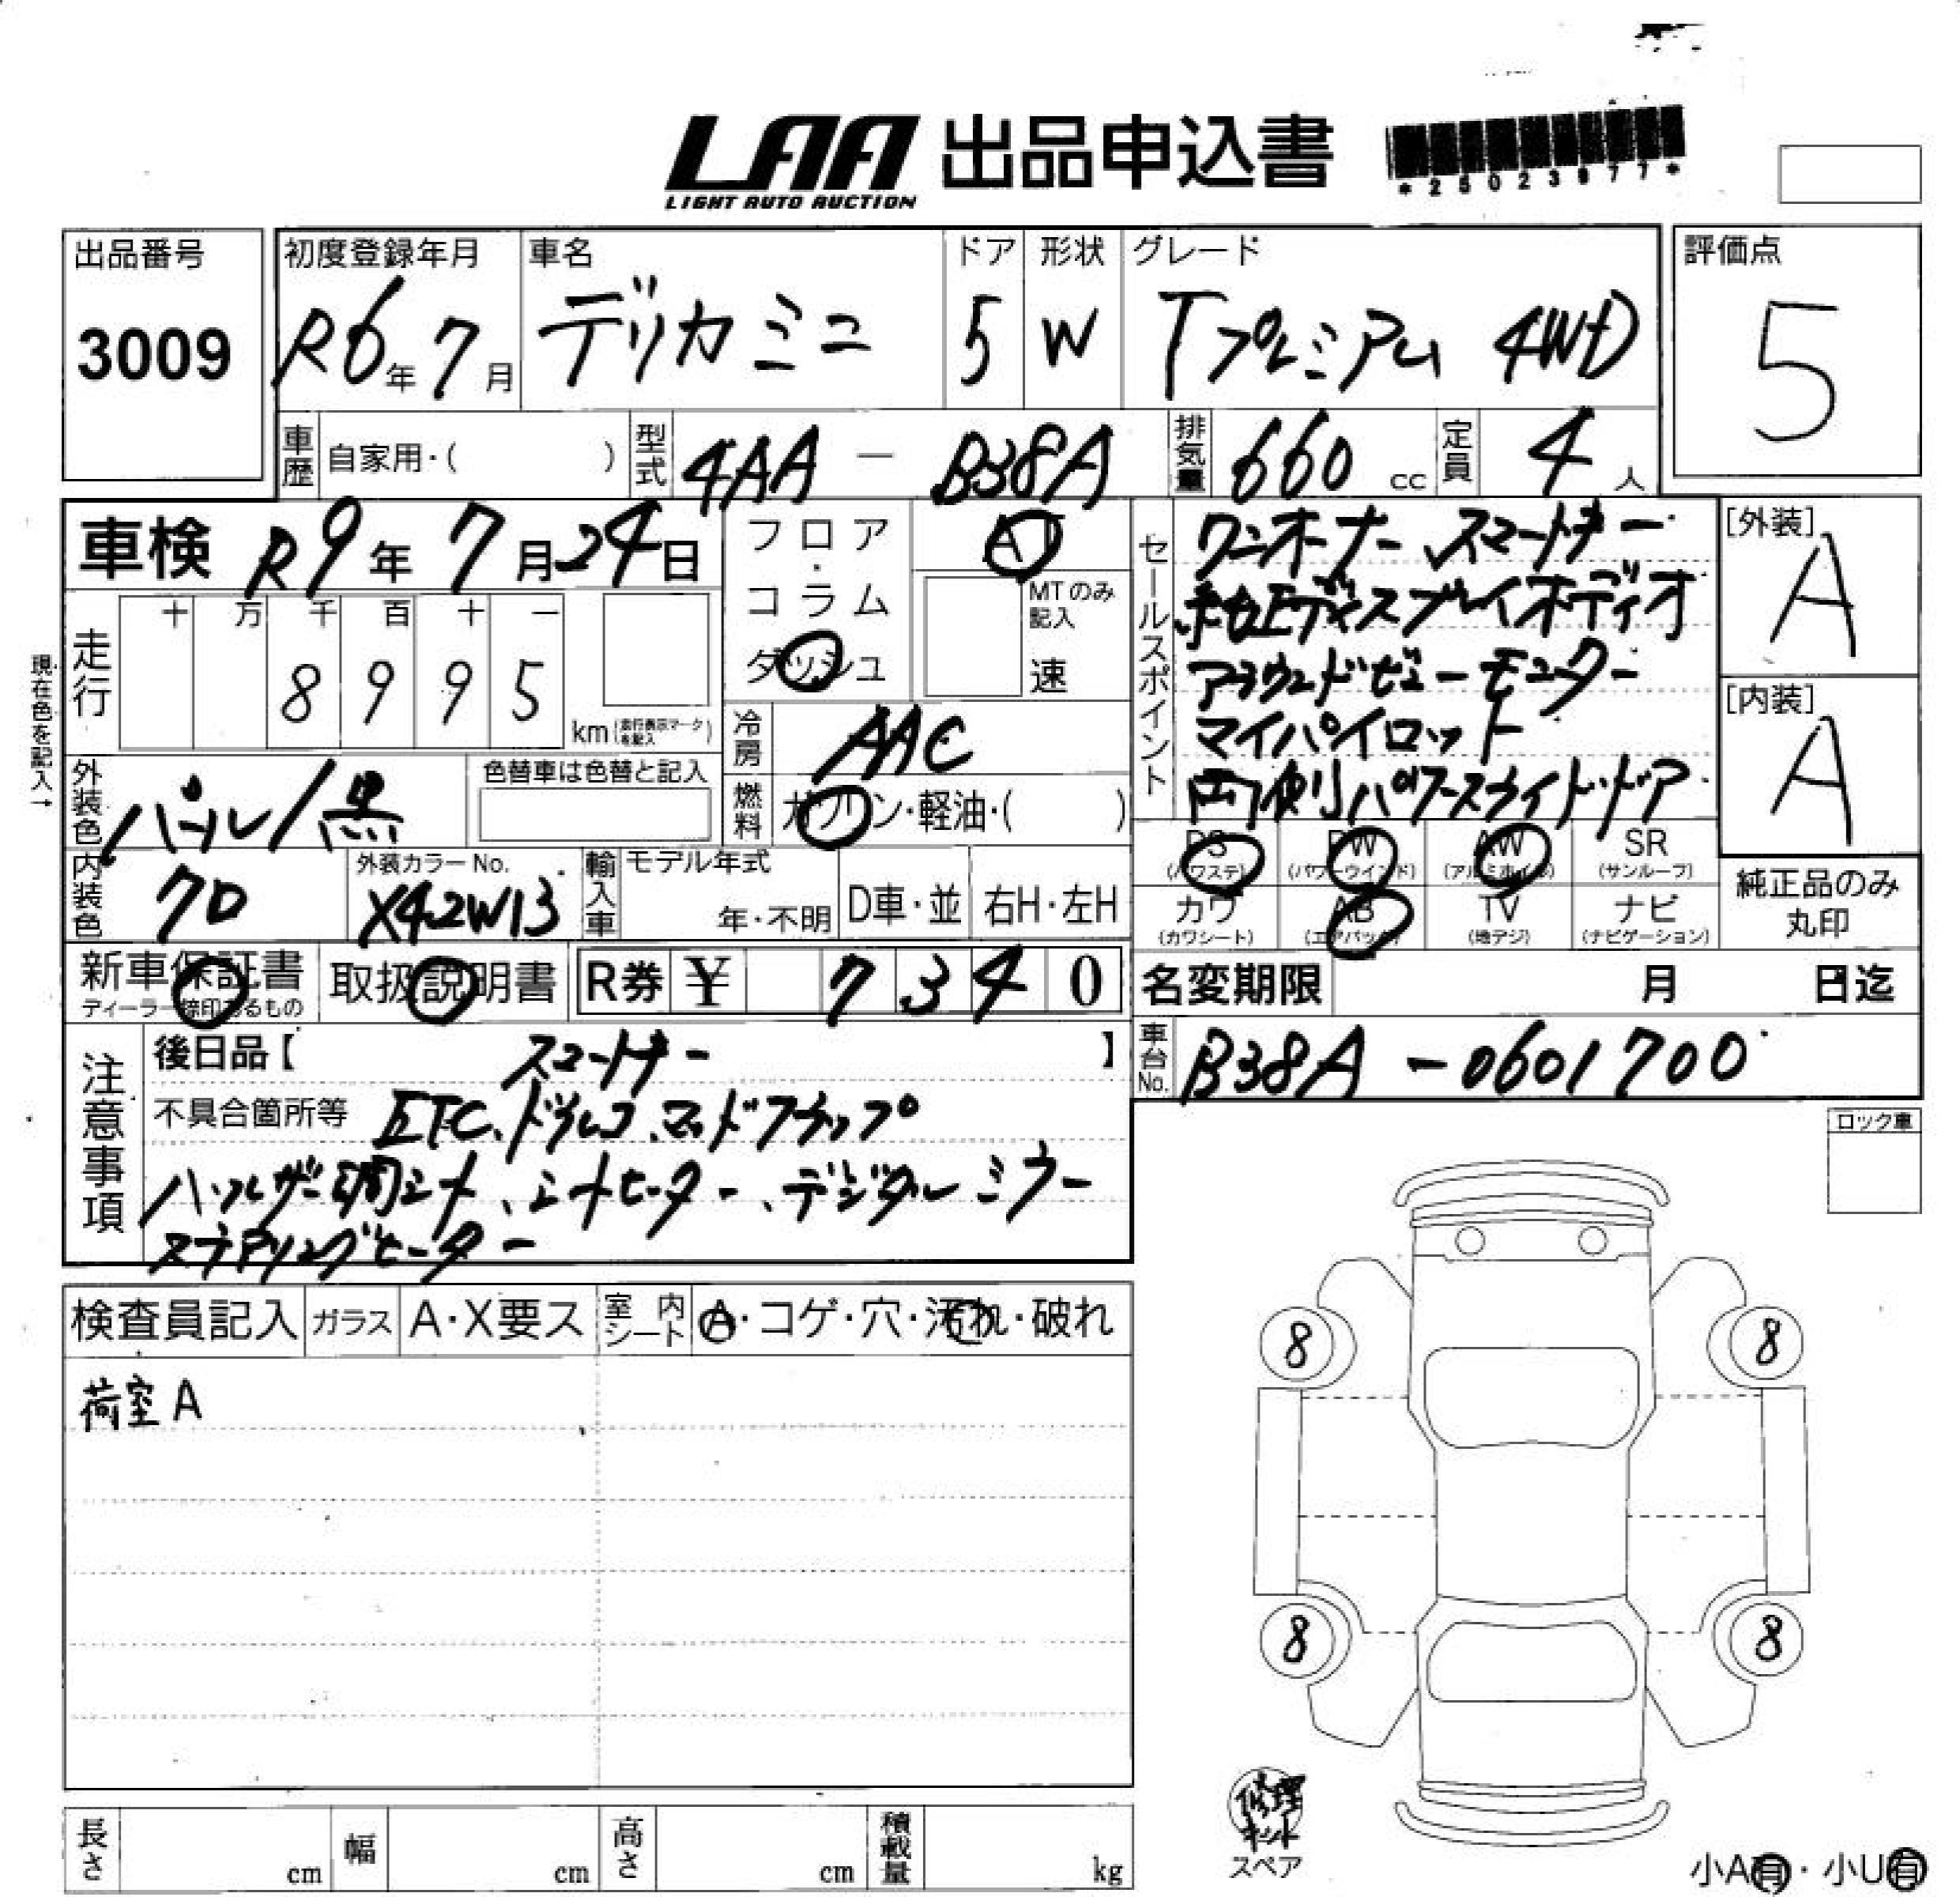 LAA 出品申込書
LIGHT AUTO AUCTION
*25023977*
出品番号 初度登録年月 車名 ドア 形状 グレード 評価点
3009 R6年7月 デリカミニ 5 W Tプレミアム 4WD 5
車歴 自家用・( ) 型式 4AA - B38A 排気量 660 cc 定員 4人
車検 R9年7月24日
フロア・コラム ダッシュ AT
MTのみ記入 速
走行 十 万 千 百 十 一
8 9 9 5 km (走行表示マークを記入)
現在色を記入→
冷房 AAC
燃料 ガソリン・軽油・( )
外装色 パール/黒 色替車は色替と記入
内装色 7D 外装カラーNo. X42W13
輸入車 モデル年式 年・不明 D車・並 右H・左H
新車保証書 ディーラー捺印あるもの 取扱説明書 R券 ¥ 7340
セールスポイント
ワンオーナー スマートキー
純正ディスプレイオーディオ
アラウンドビューモニター
マイパイロット
両側パワースライドドア
[外装] A
[内装] A
PS (パワステ) PW (パワーウインド) AW (アルミホイル) SR (サンルーフ)
カワ (カワシート) AB (エアバッグ) TV (地デジ) ナビ (ナビゲーション)
純正品のみ丸印
名変期限 月 日迄
車台No. B38A-0601700
注意事項
後日品【 スマートキー 】
不具合箇所等 ETC、ドラレコ、マッドフラップ
ハーフレザー調シート、シートヒーター、デジタルミラー
ステアリングヒーター
ロック車
検査員記入 ガラス A・X要ス 室内シート A・コゲ・穴・汚れ・破れ
荷室A
8 8
8 8
修理キット
スペア
長さ cm 幅 cm 高さ cm 積載量 kg
小A有・小U有